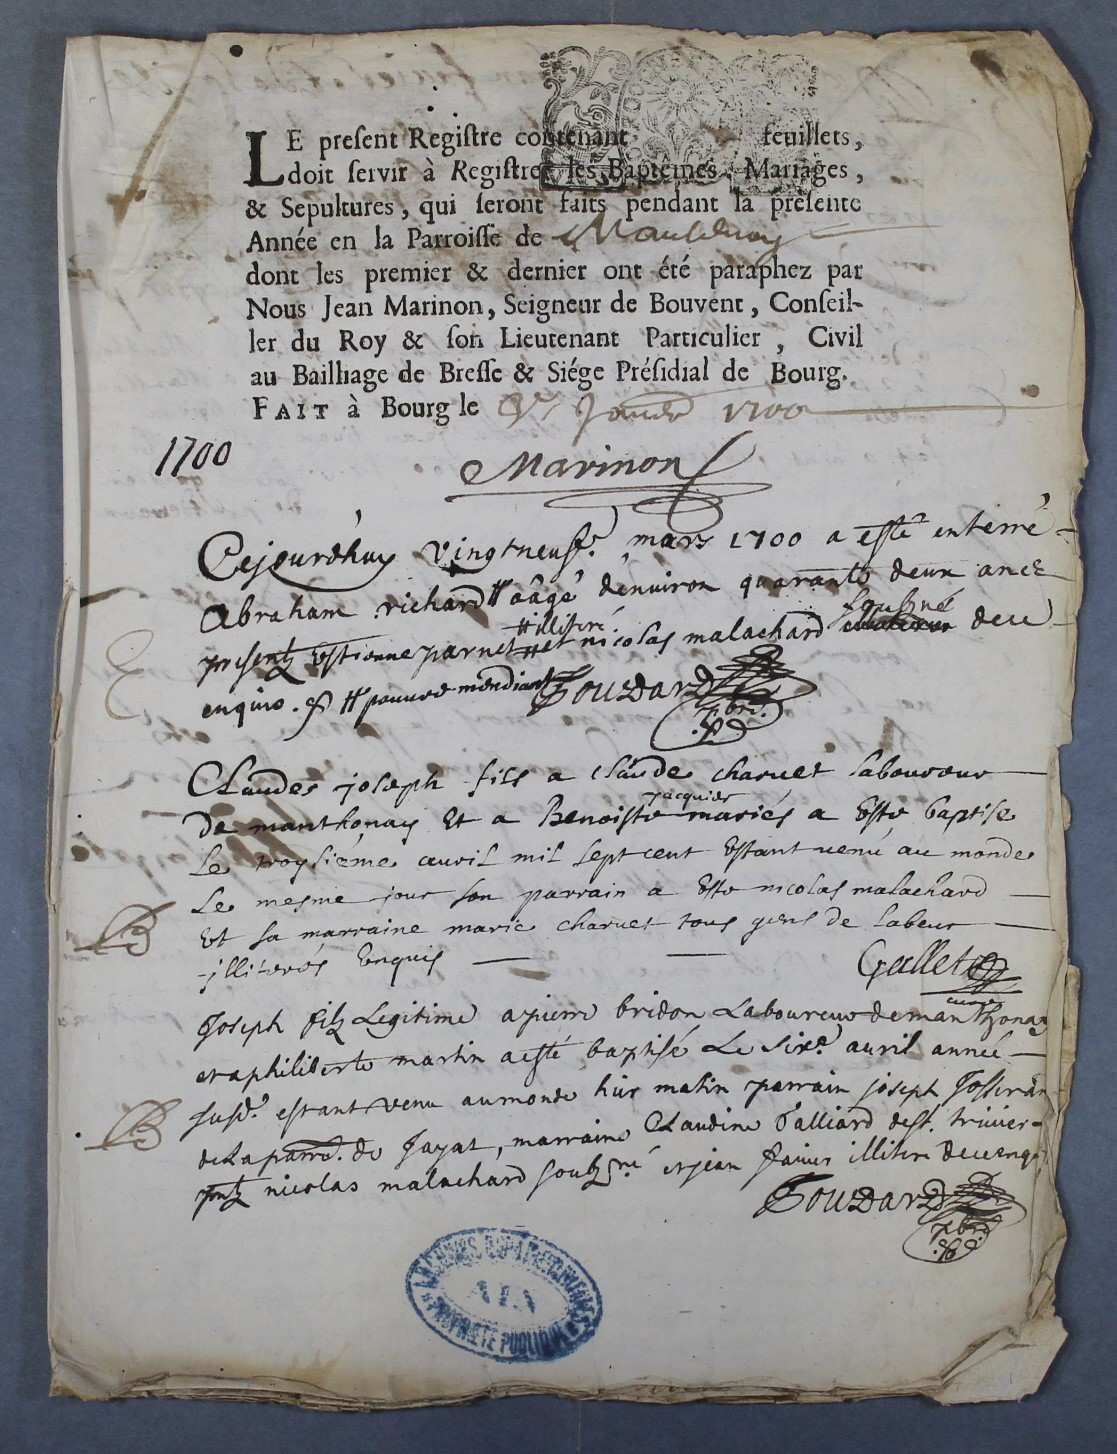 LE preſent Regiſtre contenant feuillets,
doit ſervir à Regiſtrer les Baptêmes, Mariages,
& Sepultures, qui ſeront faits pendant la preſente
Année en la Parroiſſe de
dont les premier & dernier ont été paraphez par
Nous Jean Marinon, Seigneur de Bouvent, Conſeil-
ler du Roy & ſon Lieutenant Particulier, Civil
au Bailliage de Breſſe & Siége Préſidial de Bourg.
FAIT à Bourg le Janvier 1700
1700
Marinon
Cejourd'huy vingtneuf.e mars 1700 a esté enterré
Abraham richard # aâgé d'environ quarante deux ans
presentz Estienne parnet # et nicolas malachard soubzné dece
# illitiré
enquis. # pauvre mendiant Gouzard
pbre.
Claude joseph fils a claude charvet laboureur
de manthonay Et a Benoiste jacquier mariés a Esté baptise
Le troysiéme avril mil sept cent Estant venu au monde
Le mesme jour son parrain a Esté nicolas malachard
Et sa marraine marie charvet tous gens de labeur
jlliterés Enquis Gallet
curé
B
Joseph filz Legitime a pierre bridon Laboureur de manthonay
et a philiberte martin a esté baptisé Le six.e avril année
susd.e estant venu au monde hier matin parrain joseph Josseran
de La parro. de Jayat, marraine Claudine Palliard de s.t trivier
B
pntz nicolas malachard soubzné et jean Janier illitiré de ce enq
Gouzard
pbre
ARCHIVES DEPARTEMENTALES
AIN
PROPRIETE PUBLIQUE